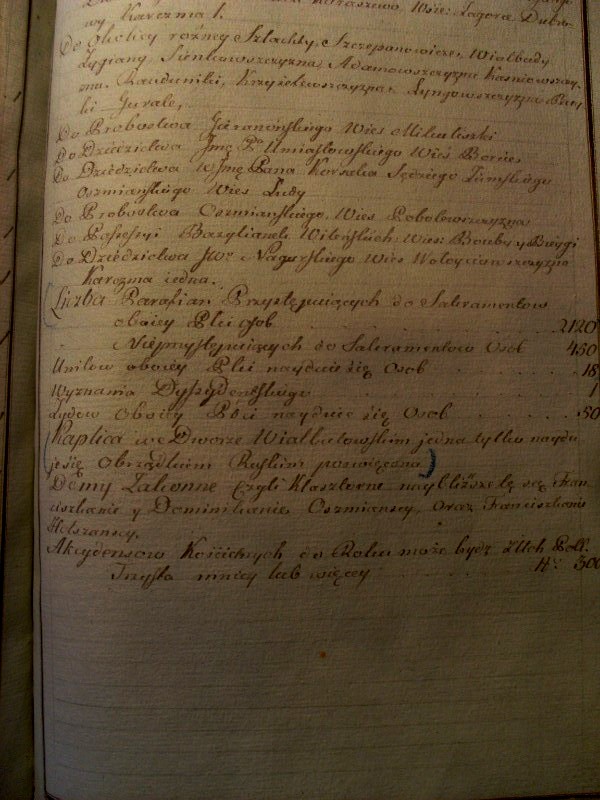 Karaszewo Wsie: Zagora Dubro
wy Karczma 1.
Do Okolicy rożney Szlachty, Szczepanowicze, Wialbudy
Zygiany, Sienkowszczyzna, Adamowszczyzna Kasniowszczy
zna, Rauduniki, Krzyżelewszczyzna, Lyngowszczyzna
ki Jurale,
Do Probostwa Jaranońskiego Wies Mikuleszki
Do Dziedzictwa Jmę Pa Umiastowskiego Wieś Borcie
Do Dziedzictwa WJmę Pana Korsaka Sędziego Ziemskiego
Oszmianskiego Wies Ludy
Do Probostwa Oszmianskiego, Wies Pobolowszczyzna
Do Possessyi Bazylianek Wileńskich: Wies: Bouby y Buygi
Do Dziedzictwa JWo Nagurskiego Wies Woloyciowszczyzna
Karczma iedna.
Liczba Parafian Przystępuiących do Sakramentow
oboiey Płci osob 2120
Nieprzystępuiących do Sakramentow Osob 450
Unitow oboiey Płci nayduie się osob 18
Wyznania Dyssydentskiego 1
Zydow Oboiey Płci nayduie się Osob 50
(Kaplica we Dworze Wialbutowskim jedna tylko naydu
je się Obrządkiem Ruskim poswięcona)
Domy Zakonne czyli Klasztorne naybliższe te są: Fran
ciszkanie y Dominikanie Oszmianscy, oraz Franciszkanie
Holszanscy.
Akcydensow Kościelnych do Roku może bydz Złtch Poll.
Trzysta mniey lub więcey 300